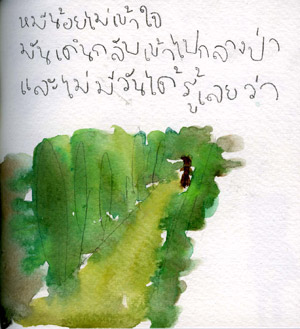 หมีน้อยไม่เข้าใจ
มันเดินกลับเข้าไปกลางป่า
และไม่มีวันได้รู้เลยว่า